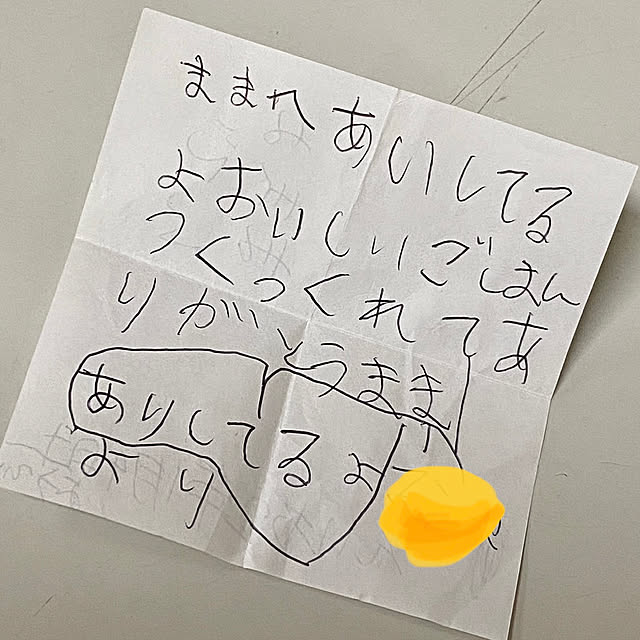 ままへ あいしてる
よおいしいごはん
つくっくれてあ
りがとうまま
ありしてるよ
より